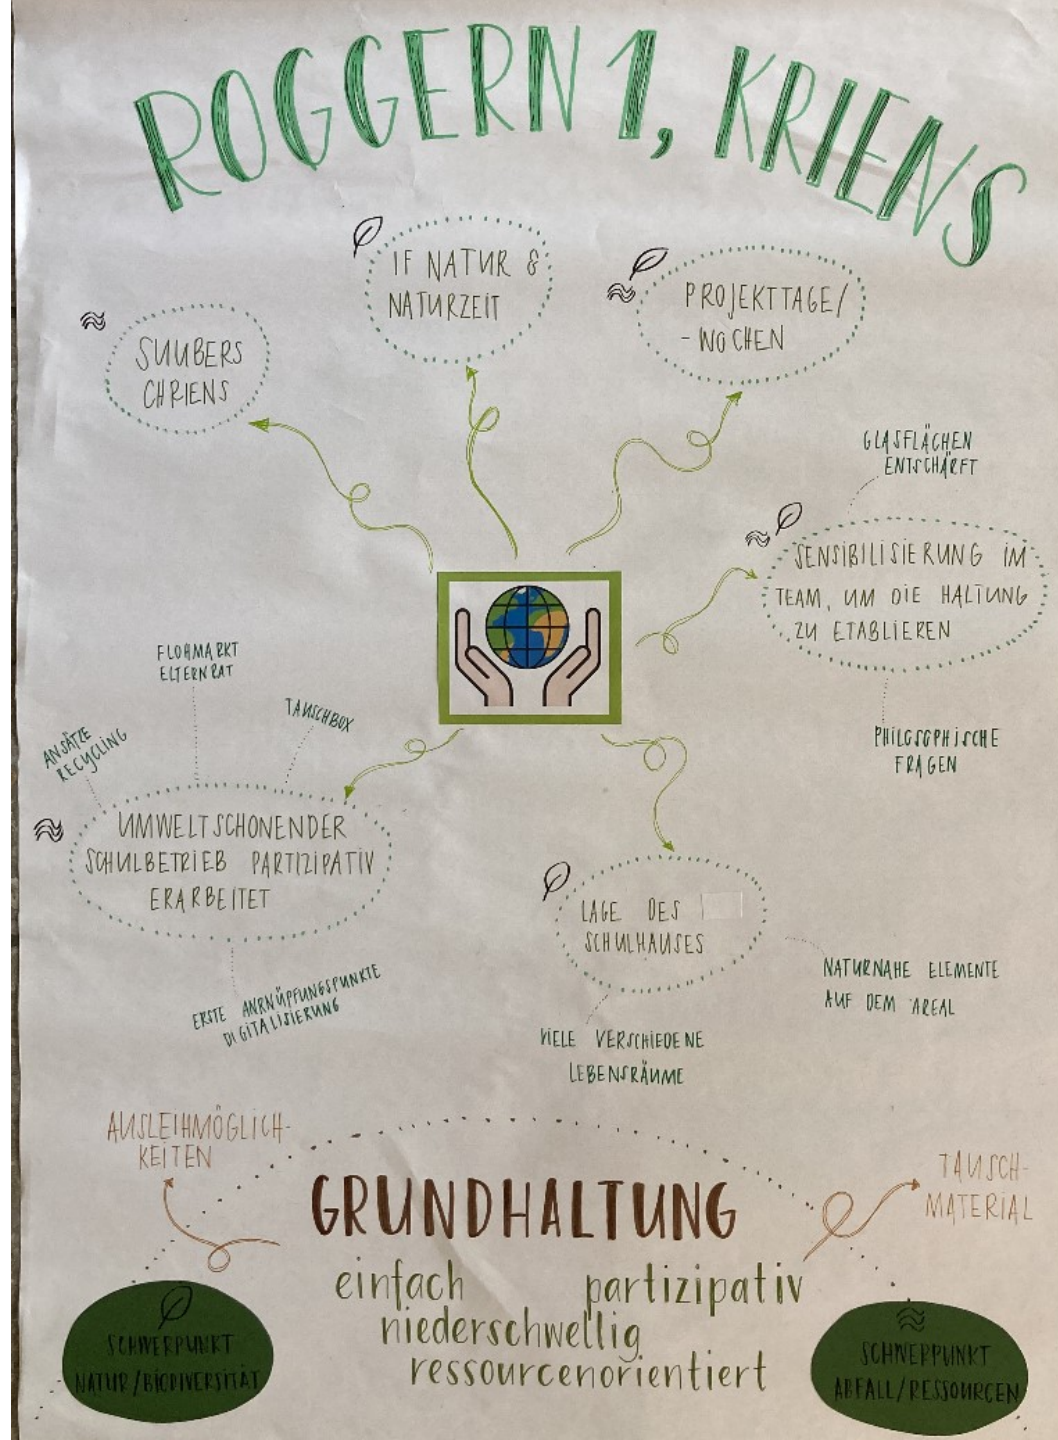 ROGGERN 1, KRIENS
IF NATUR &
NATURZEIT
PROJEKTTAGE/
-WOCHEN
SUUBERS
CHRIENS
GLASFLÄCHEN
ENTSCHÄRFT
SENSIBILISIERUNG IM
TEAM, UM DIE HALTUNG
ZU ETABLIEREN
PHILOSOPHISCHE
FRAGEN
FLOHMARKT
ELTERNRAT
TAUSCHBOX
ANSÄTZE
RECYCLING
UMWELTSCHONENDER
SCHULBETRIEB PARTIZIPATIV
ERARBEITET
ERSTE ANKNÜPFUNGSPUNKTE
DIGITALISIERUNG
LAGE DES
SCHULHAUSES
NATURNAHE ELEMENTE
AUF DEM AREAL
VIELE VERSCHIEDENE
LEBENSRÄUME
AUSLEIHMÖGLICH-
KEITEN
TAUSCH-
MATERIAL
GRUNDHALTUNG
einfach partizipativ
niederschwellig
ressourcenorientiert
SCHWERPUNKT
NATUR/BIODIVERSITÄT
SCHWERPUNKT
ABFALL/RESSOURCEN